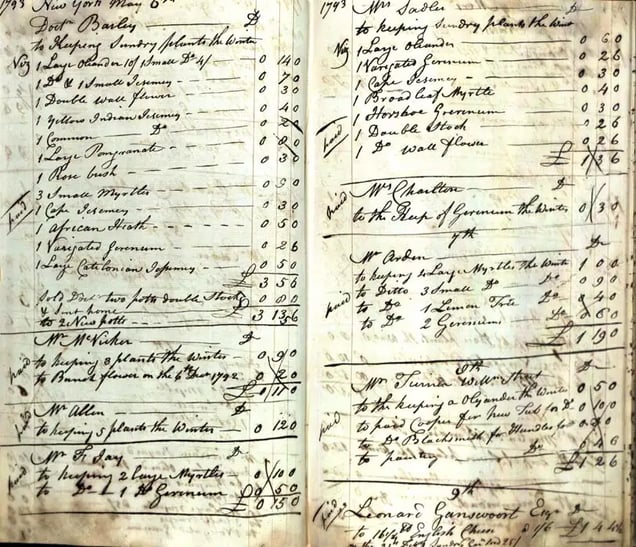 1793 New York May 6th
Doctr Barley Dr
to Keeping Sundry plants the Winter
Viz 1 Large Oleander 10/ 1 Small Do 4/ 0 14 0
1 Do & 1 Small Jesemey 0 7 0
1 Double Wall flower 0 3 0
1 Yellow Indian Jesemey 0 4 0
1 Common Do 0 2 0
1 Large Pomgranate 0 8 0
1 Rose bush 0 3 0
3 Small Myrtles 0 9 0
paid 1 Cape Jesemey 0 3 0
1 african Heath 0 5 0
1 Varigated Gerenium 0 2 6
1 Large Catelonian Jesemey 0 5 0
£ 3 5 6
Sold Do two potts double Stock 0 8 0
& Sent home
to 2 New potts £ 3 13 6
Mr McVicker Dr
paid to keeping 3 plants the Winter 0 9 0
to flower on the 6th Decr 1792 0 2 0
£ 0 11 0
Mr Allen Dr
paid to keeping 5 plants the Winter 0 12 0
Mr Fr Jay Dr
paid to keeping 2 Large Myrtles 0 10 0
to Do 1 Do Gerenium 0 5 0
£ 0 15 0
1793 Mrs Sadler Dr
to keeping Sundry plants the Wint
Viz 1 Large Oleander 0 6 0
1 Varigated Gerenium 0 2 6
1 Cape Jesemey 0 3 0
1 Broad leaf Myrtle 0 4 0
1 Horshoe Gerenium 0 3 0
paid 1 Double Stock 0 2 6
1 Do Wall flower 0 2 6
£ 1 3 6
paid Mrs Charlton Dr
to the Keep of Gerenium the Winter 0 3 0
7th
Mr Arden Dr
to keeping 4 Large Myrtles the Winte 1 0 0
paid to Ditto 3 Small Do 0 9 0
to Do 1 Lemon Tree 0 4 0
to Do 2 Gereniums 0 6 0
£ 1 19 0
8th
Mrs Turner Willm Street Dr
to the keeping a Olyander the Winter 0 5 0
paid to paid Cooper for new Tub for Do 0 10 0
to Do Blacksmith for Handles for Do
to painting Do 4 6
£ 1 2 6
9th
paid Leonard Gansevoort Esqr Dr
to 16 1/4 English Cheese 1/6 £ 1 4